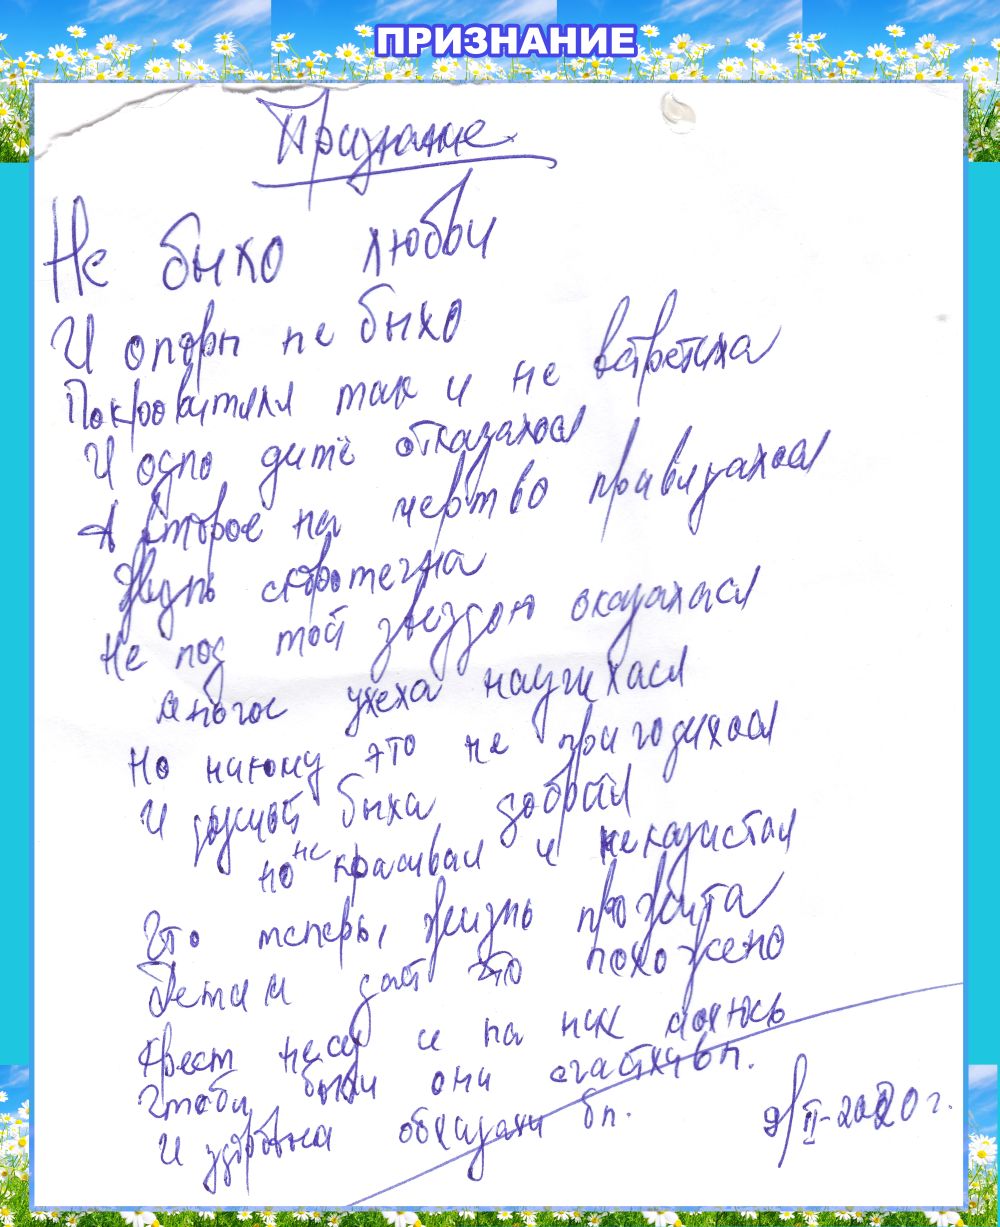 ПРИЗНАНИЕ
Признание
Не было любви
И опоры не было
Покровителя так и не встретила
И одно дитё отказалося
А второе на мертво привязалося
Жизнь скоротечна
Не под той звездою оказалася
многое умела научилася
Но никому это не пригодилося
И душой была доброй
но не красивая и неказистая
Что теперь, жизнь прожита
Детям дай что положено
Крест несу и за них молюсь
Чтобы были они счастливы.
И здоровьем обладали бы.
9/II-2020 г.